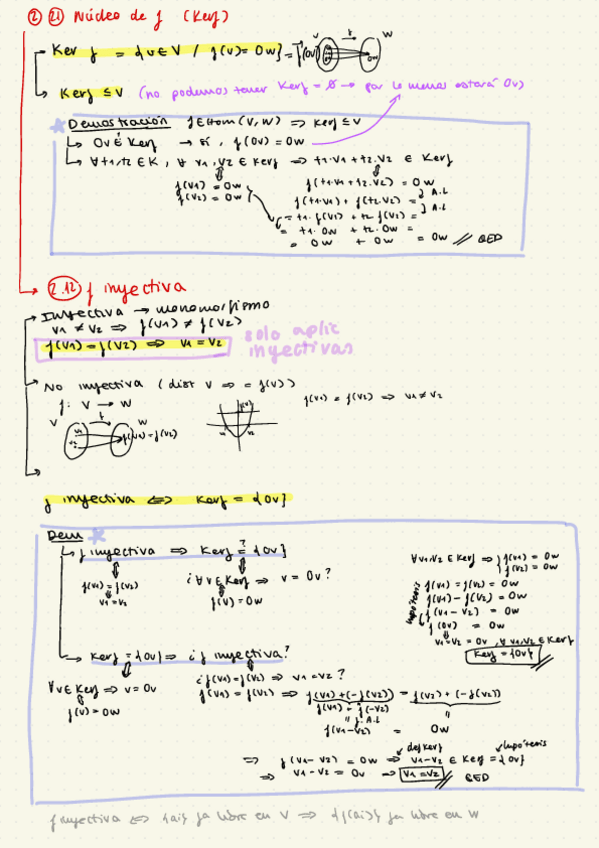 2 21 Núcleo de f (Kerf)
Ker f = {v∈V / f(v)=0w} = f(0v)
V f W
0w
Kerf ≤ V (no podemos tener Kerf = ∅ → por lo menos estará 0v)
Demostración f∈Hom(V,W) ⇒ Kerf ≤ V
0v ∈ Kerf → sí, f(0v) = 0w
∀t1,t2∈K, ∀ v1,v2 ∈ Kerf ⇒ t1·v1+t2·v2 ∈ Kerf
f(v1) = 0w
f(v2) = 0w
f(t1·v1+t2·v2) = 0w
f(t1·v1) + f(t2·v2) = A.L
= t1·f(v1) + t2·f(v2) = A.L
= t1·0w + t2·0w =
= 0w + 0w = 0w // QED
2.12 f inyectiva
Inyectiva → monomorfismo
v1 ≠ v2 ⇒ f(v1) ≠ f(v2)
f(v1) = f(v2) ⇒ v1 = v2
solo aplic inyectivas
No inyectiva (dist v ⇒ = f(v))
f: V → W
f(v1) = f(v2) ⇒ v1 ≠ v2
V f W
v1 v2 f(v1) = f(v2)
f(v)
v1 v2
f inyectiva ⇔ Kerf = {0v}
Dem
f inyectiva ⇒ Kerf = {0v} ?
f(v1) = f(v2)
v1 = v2
¿∀v∈Kerf ⇒ v = 0v?
f(v) = 0w
∀v1,v2 ∈ Kerf ⇒ f(v1) = 0w
f(v2) = 0w
f(v1) = f(v2) = 0w
f(v1) - f(v2) = 0w
hipótesis
f(v1-v2) = 0w
f(0v) = 0w
v1=v2 = 0v, ∀ v1,v2 ∈ Kerf
Kerf = {0v} //
Kerf = {0v} ⇒ ¿f inyectiva?
∀v∈Kerf ⇒ v = 0v
f(v) = 0w
¿f(v1)=f(v2) ⇒ v1=v2?
f(v1) = f(v2) ⇒ f(v1)+(-f(v2)) = f(v2)+(-f(v2))
f(v1) + f(-v2)
A.L
f(v1-v2) = 0w
def Kerf hipótesis
⇒ f(v1-v2) = 0w ⇒ v1-v2 ∈ Kerf = {0v}
⇒ v1-v2 = 0v → v1=v2 // QED
f inyectiva ⇔ {ai} fa libre en V ⇒ {f(ai)} fa libre en W